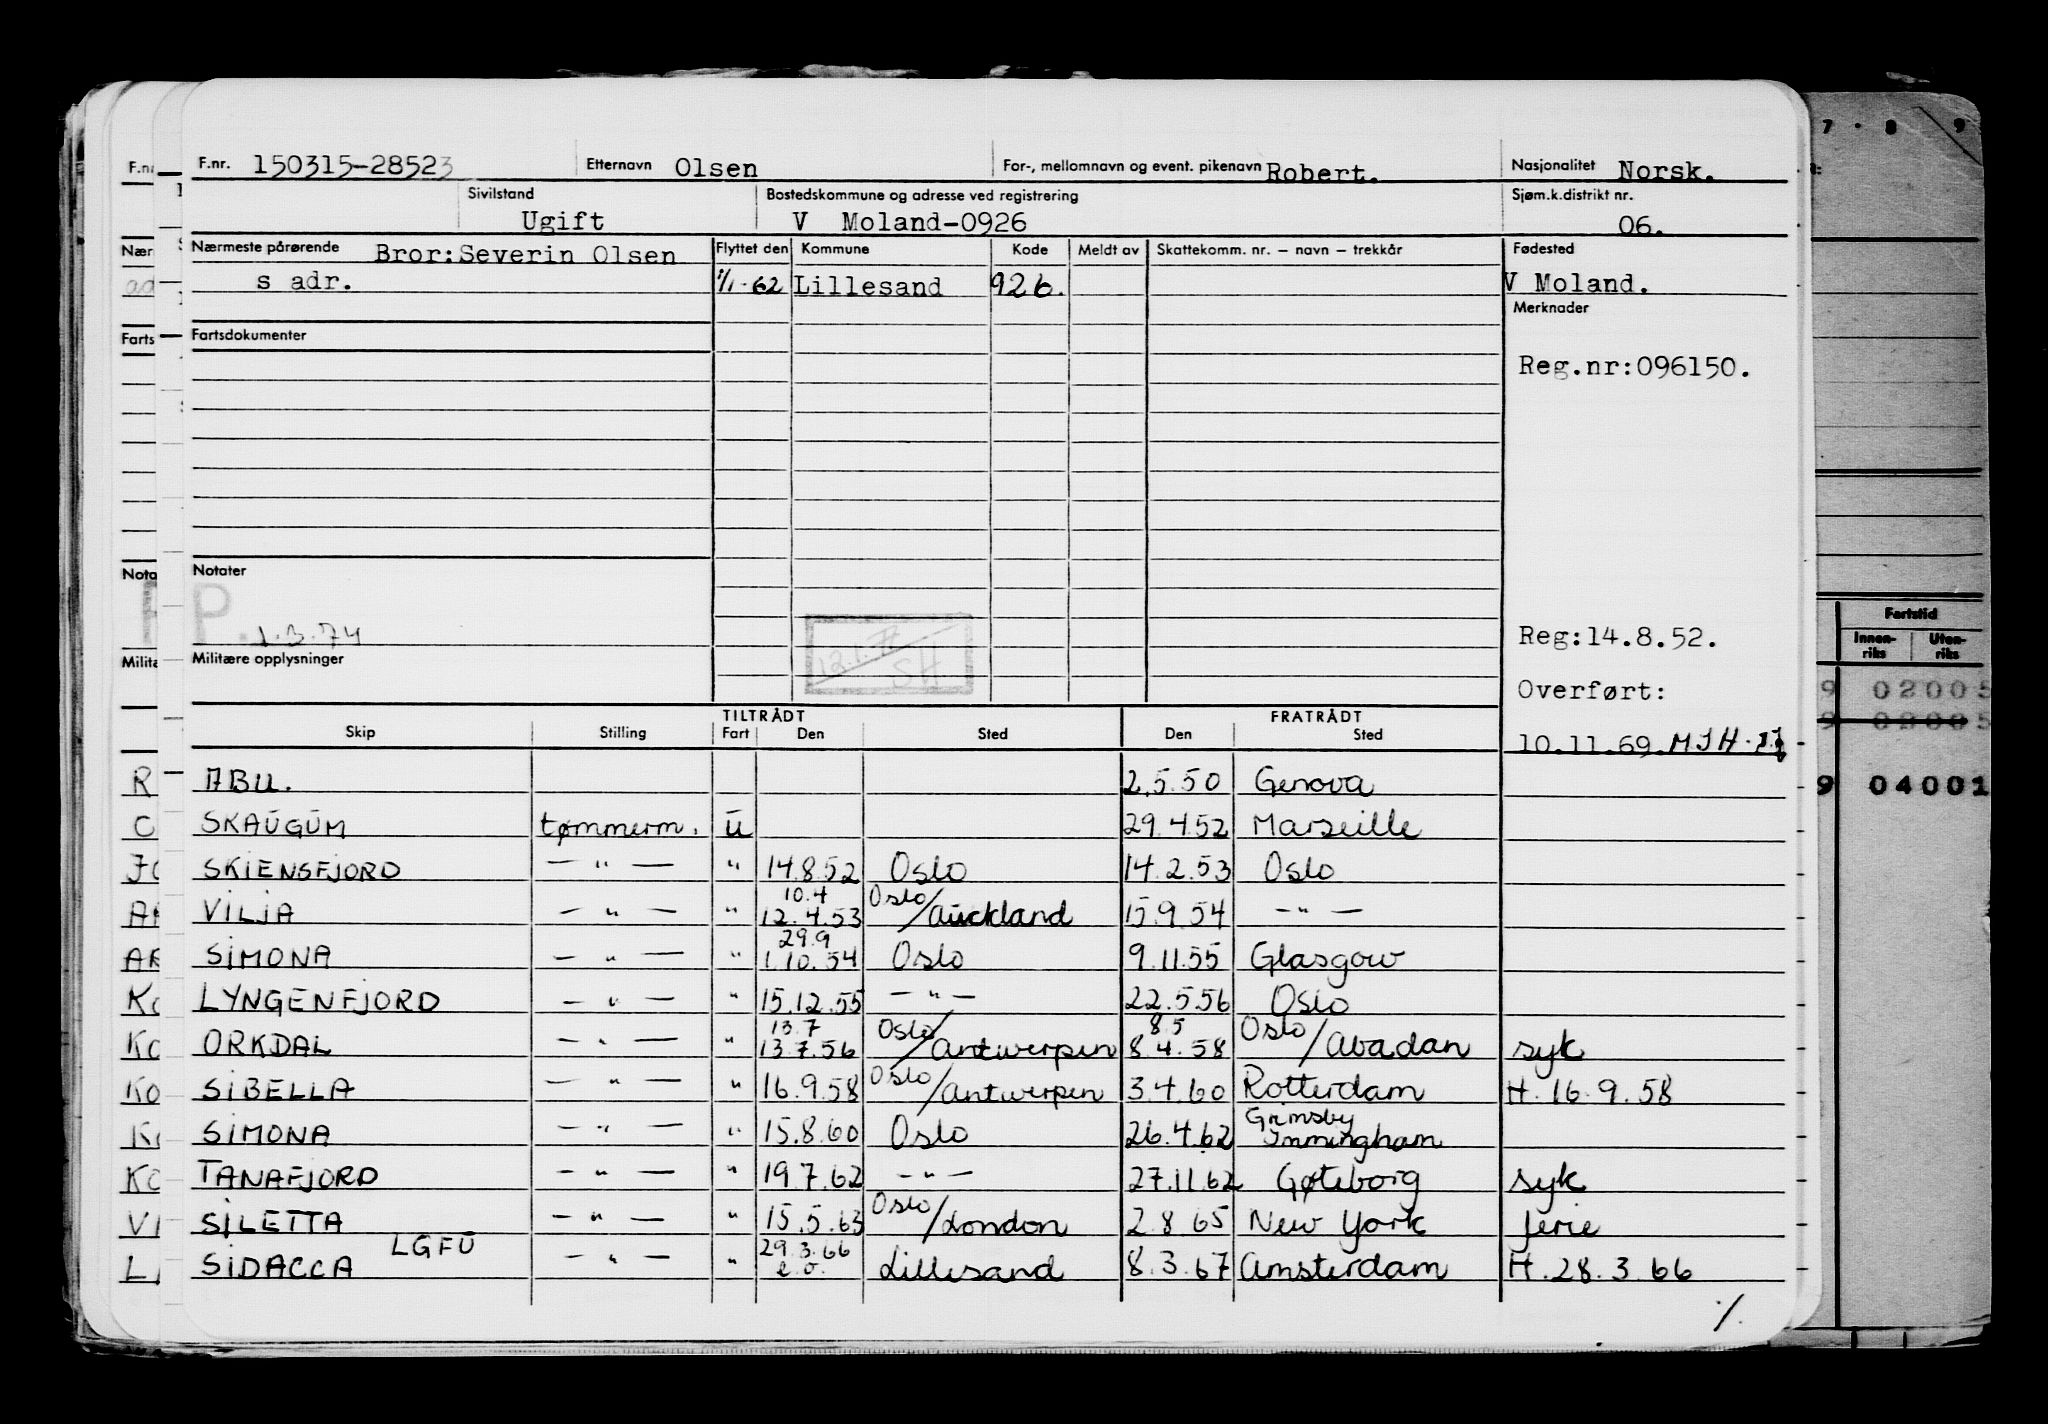 F.nr. 150315-28523 Etternavn Olsen For-, mellomnavn og event. pikenavn Robert. Nasjonalitet Norsk.
Sivilstand Ugift Bostedskommune og adresse ved registrering V Moland-0926 Sjøm.k.distrikt nr. 06.
Nærmeste pårørende Bror:Severin Olsen Flyttet den Kommune Kode Meldt av Skattekomm. nr. – navn – trekkår Fødested
s adr. 1/1-62 Lillesand 926. V Moland.
Merknader
Fartsdokumenter
Reg.nr:096150.
Notater
P.
1.3.74
12.1.77
SH
Reg:14.8.52.
Militære opplysninger
Overført:
10.11.69.
TILTRÅDT FRATRÅDT
Skip Stilling Fart Den Sted Den Sted
R ABU. 2.5.50 Genova
C SKAUGUM tømmerm. u 29.4.52 Marseille
SKIENSFJORD — " — " 14.8.52 Oslo 14.2.53 Oslo
VILJA — " — " 10.4 12.4.53 Oslo/Auckland 15.9.54 — " —
SIMONA — " — " 29.9 1.10.54 Oslo 9.11.55 Glasgow
LYNGENFJORD — " — " 15.12.55 — " — 22.5.56 Oslo
ORKDAL — " — " 13.7 13.7.56 Oslo/Antwerpen 8.5 8.4.58 Oslo/Abadan syk
SIBELLA — " — " 16.9.58 Oslo/Antwerpen 3.4.60 Rotterdam H.16.9.58
SIMONA — " — " 15.8.60 Oslo 26.4.62 Grimsby Immingham
TANAFJORD — " — " 19.7.62 — " — 27.11.62 Gøteborg syk
SILETTA — " — " 15.5.63 Oslo/London 2.8.65 New York ferie
SIDACCA LGFU — " — " 29.3.66 e.o. Lillesand 8.3.67 Amsterdam H.28.3.66
7 · 8 9
Fartstid
Innen-riks Uten-riks
9 02005
9 04001